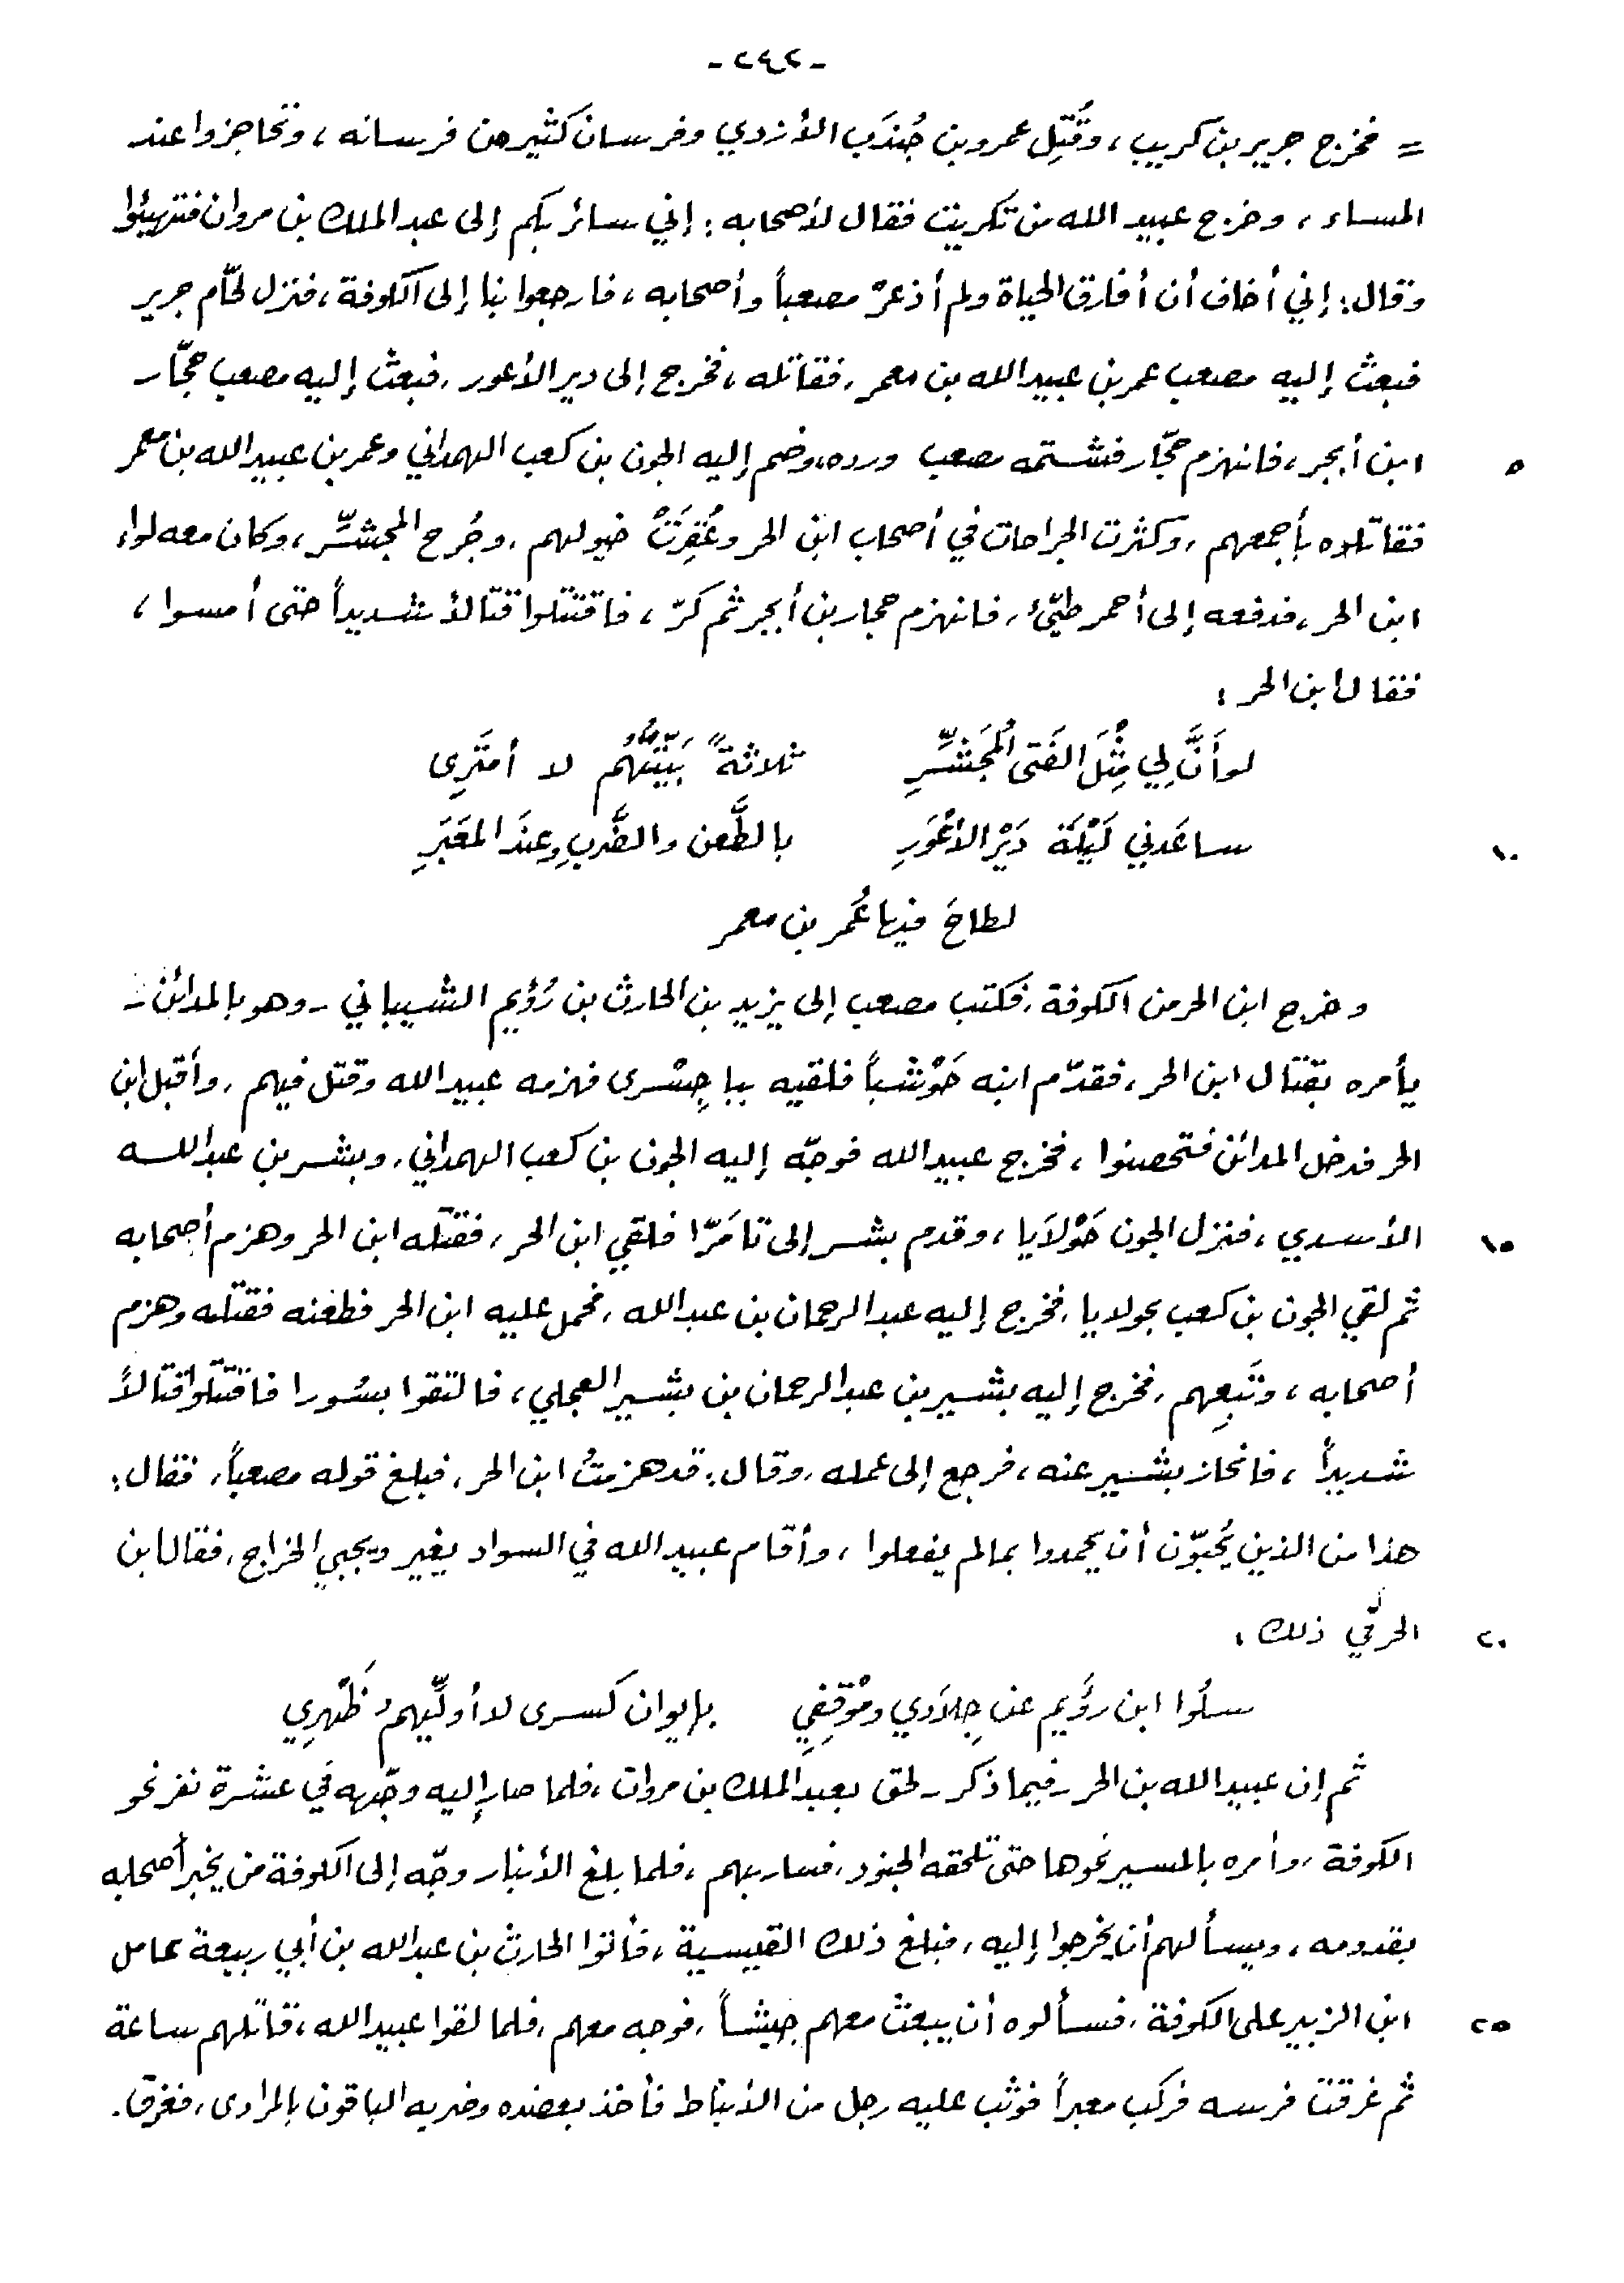 - ٢٤٢ -
= فخرج جرير بن كريب ، وقُتِل عمرو بن جُندَب الأزدي وفرسان كثير من فرسانه ، وتحاجزوا عند
المساء ، وخرج عبيد الله من تكريت فقال لأصحابه : إني سائر بكم إلى عبد الملك بن مروان فتهيئوا
وقال : إني أخاف أن أفارق الحياة ولم أذعرْ مصعباً وأصحابه ، فارجعوا بنا إلى الكوفة ، فنزل لحّام جرير
فبعث إليه مصعب عمر بن عبيد الله بن معمر ، فقاتله ، فخرج إلى دير الأعور ، فبعث إليه مصعب حجّار
٥ ابن أبجر ، فانهزم حجّار فشتمه مصعب ورده ، وضم إليه الجون بن كعب الهمداني وعمر بن عبيد الله بن معمر
فقاتلوه بأجمعهم ، وكثرت الجراحات في أصحاب ابن الحر وعُقِرَتْ خيولهم ، وجُرح المجشّر ، وكان معه لواء
ابن الحر ، فدفعه إلى أحمر طيّئ ، فانهزم حجار بن أبجر ثم كرّ ، فاقتتلوا قتالاً شديداً حتى أمسوا ،
فقال ابن الحر :
لو أَنَّ لِي مِثْلَ الفَتى المُجَشَّرِ ثلاثةً بَيَّتُّهُم لا أمتَرِى
١٠ ساعَدني لَيْلَة دَيْر الأعْوَرِ بالطَّعن والضَّربِ وعندَ المَعَبَرِ
لطاحَ فيها عُمر بن معمر
وخرج ابن الحر من الكوفة ، فكتب مصعب إلى يزيد بن الحارث بن رُؤيم الشيباني - وهو بالمدائن -
يأمره بقتال ابن الحر ، فقدّم ابنه حَوْشباً فلقيه بباجِسْرى فهزمه عبيد الله وقتل فيهم ، وأقبل ابن
الحر فدخل المدائن فتحصنوا ، فخرج عبيد الله فوجّه إليه الجون بن كعب الهمداني ، وبشر بن عبد الله
١٥ الأسدي ، فنزل الجون حَوْلاَيا ، وقدم بشر إلى تامَرّا فلقي ابن الحر ، فقتله ابن الحر وهزم أصحابه
ثم لقي الجون بن كعب بحولايا ، فخرج إليه عبد الرحمان بن عبد الله ، فحمل عليه ابن الحر فطعنه فقتله وهزم
أصحابه ، وتَبِعهم ، فخرج إليه بشير بن عبد الرحمان بن بشير العجلي ، فالتقوا بسُورا فاقتتلوا قتالاً
شديداً ، فانحاز بشير عنه ، فرجع إلى عمله ، وقال : قد هزمتُ ابن الحر ، فبلغ قوله مصعباً ، فقال :
هذا من الذين يُحبّون أن يحمدوا بما لم يفعلوا ، وأقام عبيد الله في السواد يغير ويجبي الخراج ، فقال ابن
٢٠ الحر في ذلك :
سلُوا ابن رؤَيم عن جِلاَدي ومَوْقِفِي بإيوان كسرى لا أولِّيهمُ ظَهْرِي
ثم إن عبيد الله بن الحر - فيما ذكر - لحق بعبد الملك بن مروان ، فلما صار إليه وجّهه في عشرة نفر نحو
الكوفة ، وأمره بالمسير نحوها حتى تلحقه الجنود ، فسار بهم ، فلما بلغ الأنبار وجّه إلى الكوفة من يخبر أصحابه
بقدومه ، ويسألهم أن يخرجوا إليه ، فبلغ ذلك القيسية ، فأتوا الحارث بن عبد الله بن أبي ربيعة عامل
٢٥ ابن الزبير على الكوفة ، فسألوه أن يبعث معهم جيشاً ، فوجه معهم ، فلما لقوا عبيد الله ، قاتلهم ساعة
ثم غرقت فرسه فركب معبراً فوثب عليه رجل من الأنباط فأخذ بعضده وضربه الباقون بالمرادى ، فغرق .